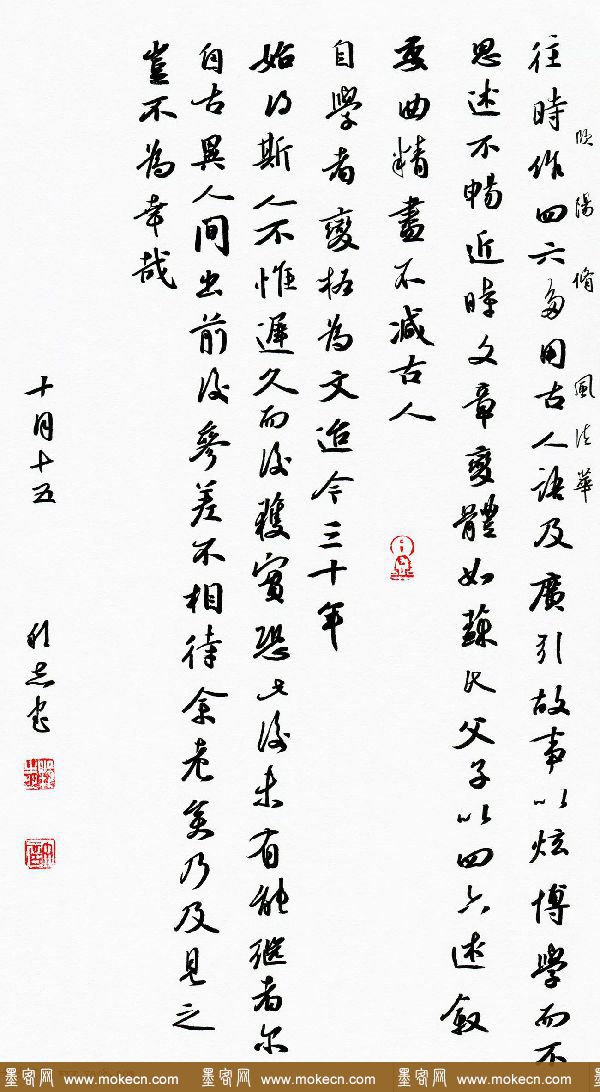 欧陽脩 風法華
往時作四六多用古人語及廣引故事以炫博學而不
思述不暢近時文章變體如蘇氏父子以四六述敘
委曲精盡不減古人
自學者變格為文迨今三十年
始得斯人不惟遲久而後獲實恐此後未有能繼者尔
自古異人間出前後參差不相待余老矣乃及見之
豈不為幸哉
十月十五
墨客网 www.mokecn.com 墨客网 www.mokecn.com 墨客网 www.mokecn.com 墨客网